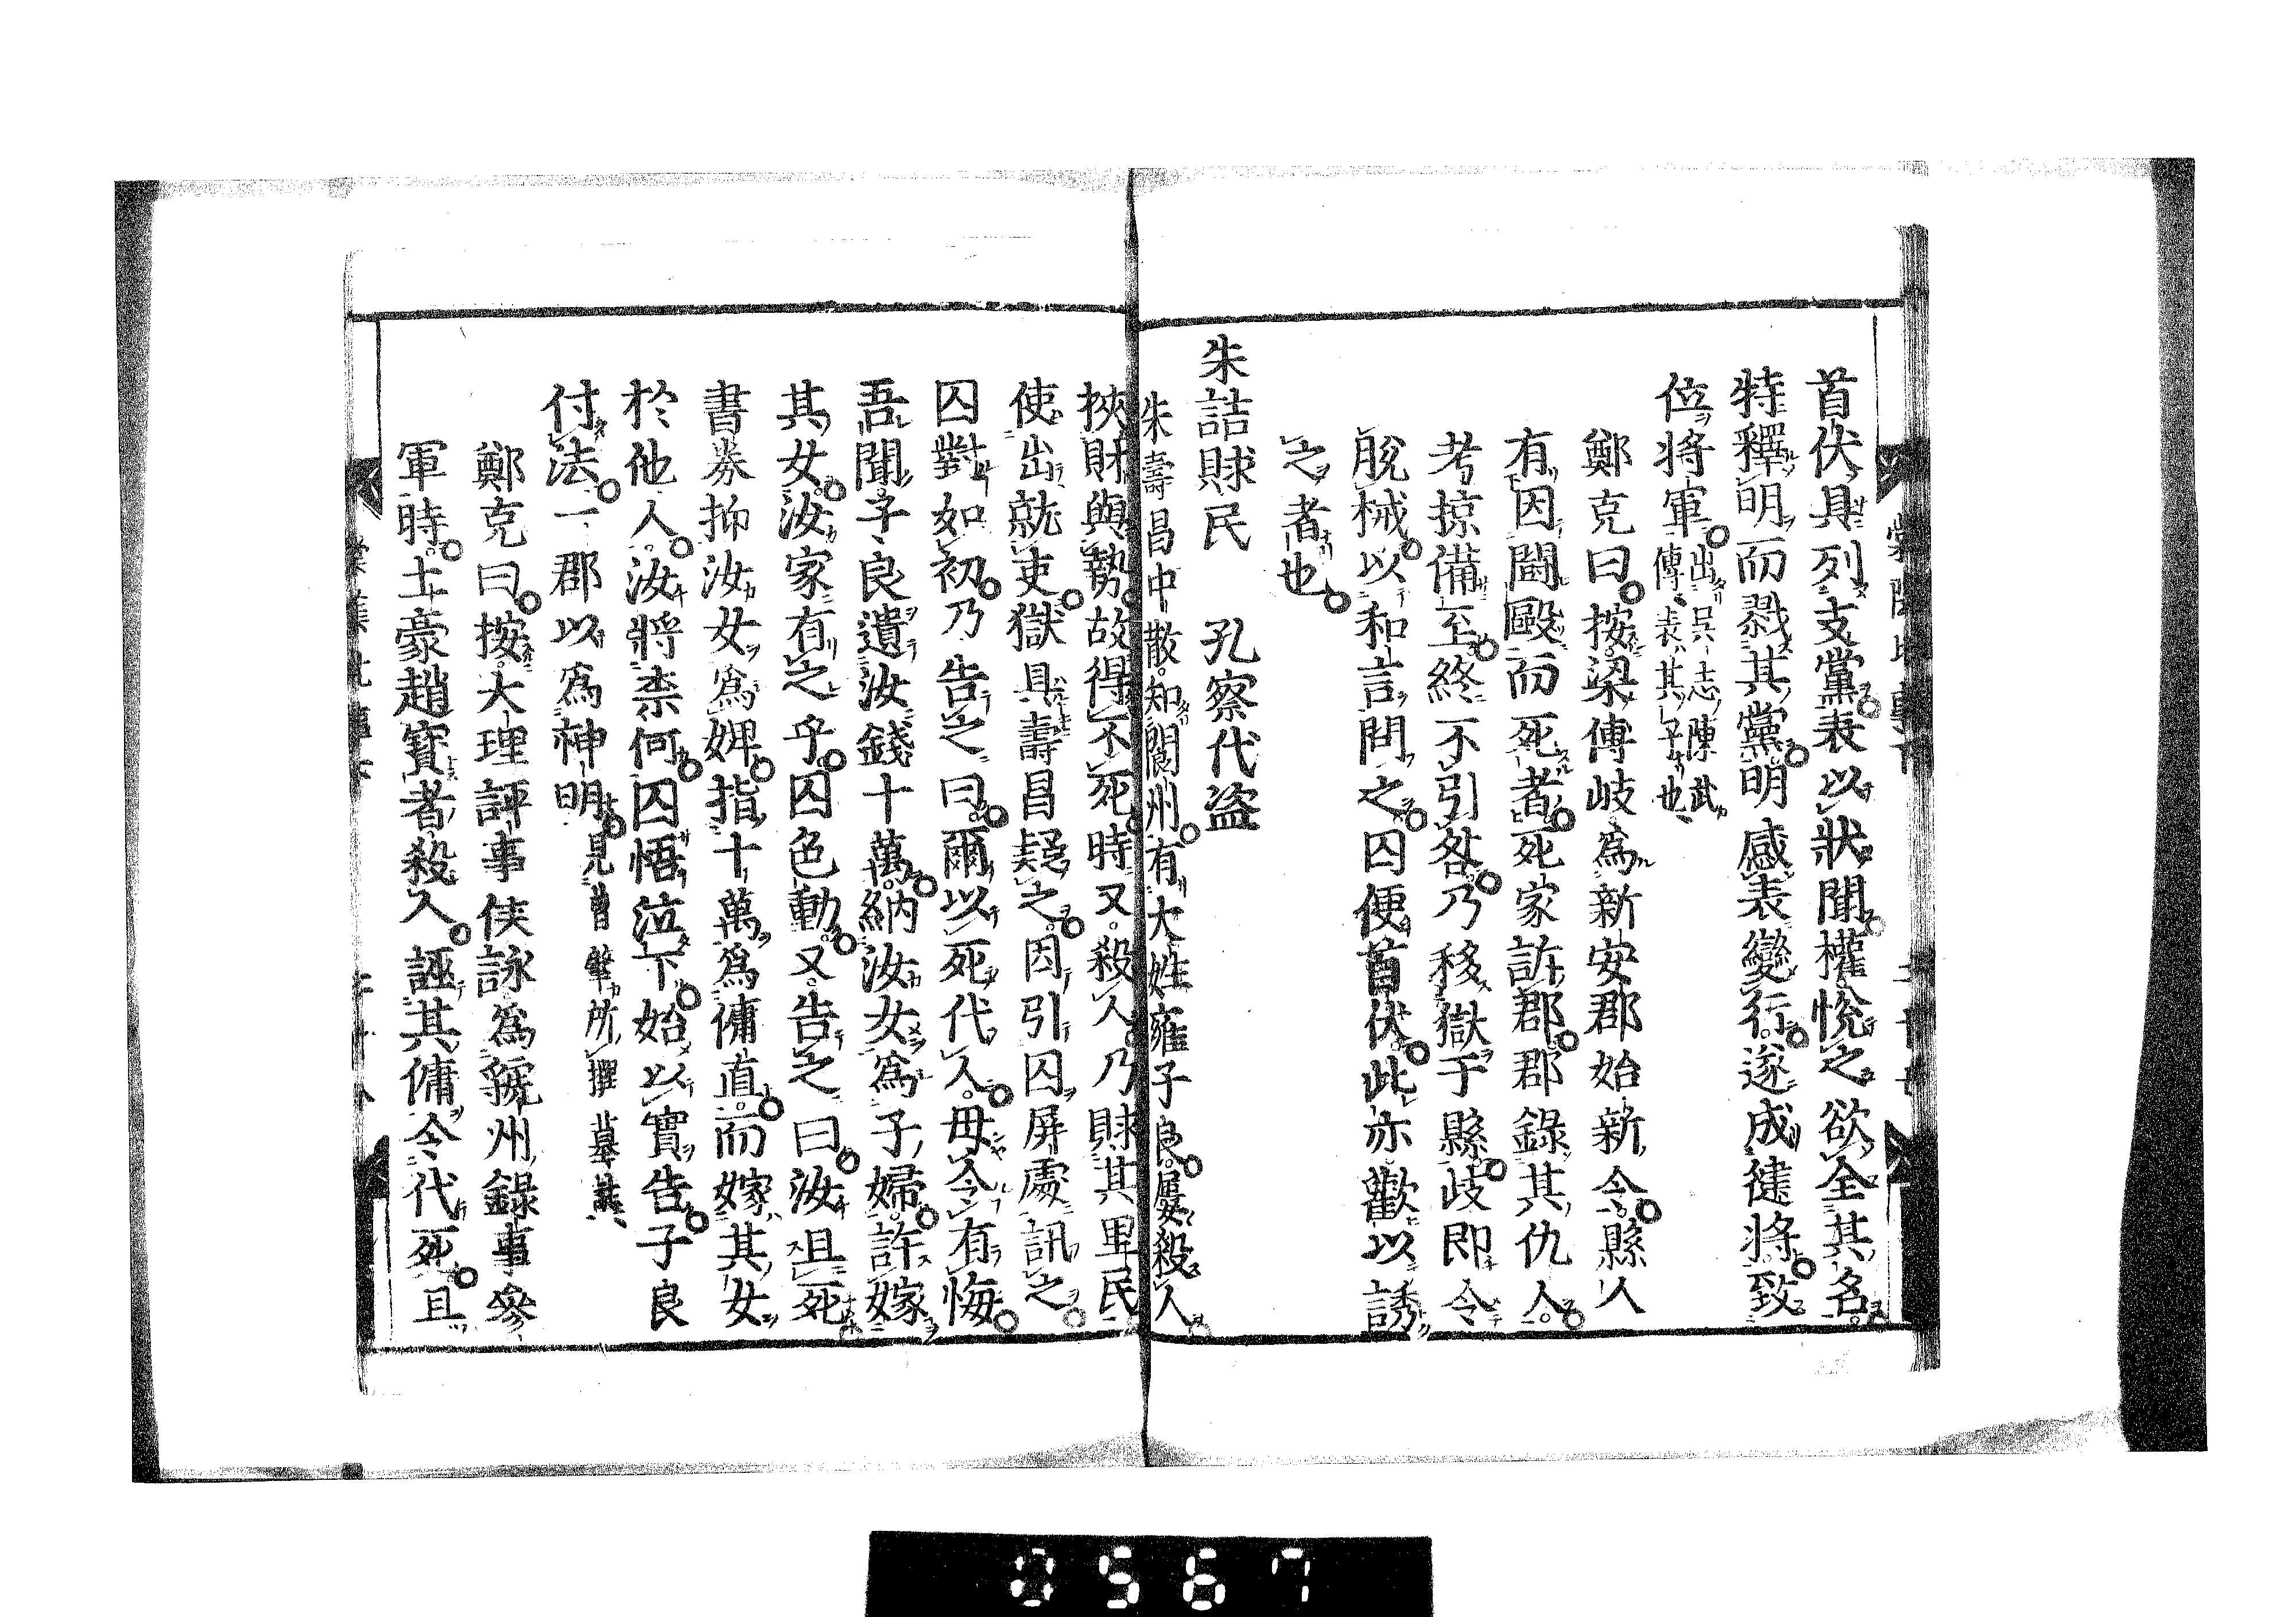 首伏具列支黨表以狀聞權悅之欲全其名
特釋明而戮其黨明感表變行遂成健將致
位將軍出吳志陳武
傳表其子也
鄭克曰按梁傅岐爲新安郡始新令縣人
有因鬪毆而死者死家訴郡郡錄其仇人
考掠備至終不引咎乃移獄于縣岐即令
脫械以和言問之囚便首伏此亦歡以誘
之者也
朱詰賕民 孔察代盜
朱壽昌中散知閬州有大姓雍子良屢殺人
挾財與勢故得不死時又殺人乃賕其里民
使出就吏獄具壽昌疑之因引囚屏處訊之
囚對如初乃告之曰爾以死代人毋令有悔
吾聞子良遺汝錢十萬納汝女爲子婦許嫁
其女汝家有之乎囚色動又告之曰汝且死
書券抑汝女爲婢指十萬爲傭直而嫁其女
於他人汝將柰何囚悟泣下始以實告子良
付法一郡以爲神明見曾肇所撰墓誌
鄭克曰按大理評事侠詠爲虢州錄事參
軍時土豪趙寶者殺人誣其傭令代死且
0567